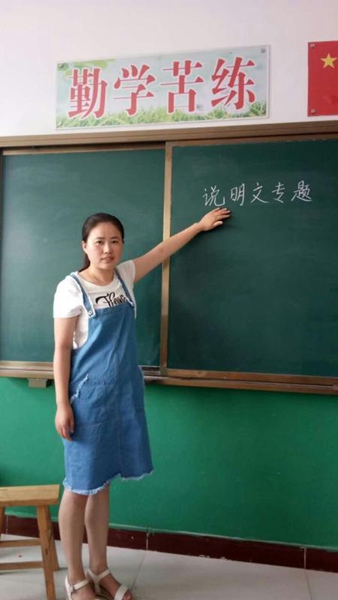 勤学苦练
说明文专题